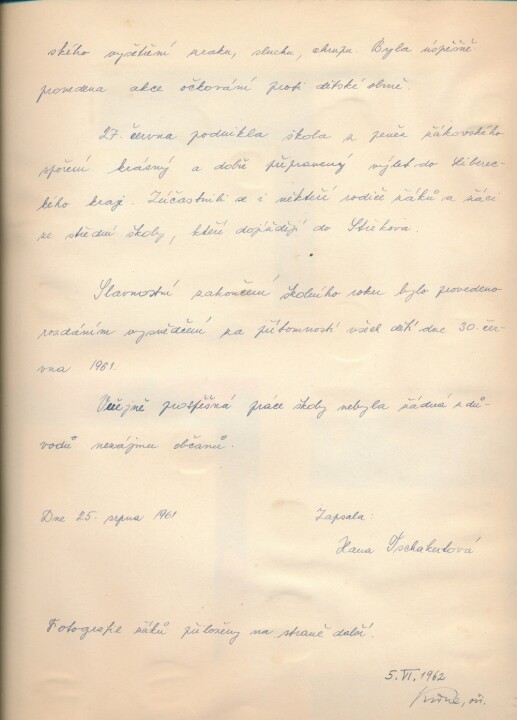 ského vyšetření zraku, sluchu, chrupu. Byla úspěšně
provedena akce očkování proti dětské obrně.
27. června podnikla škola z peněz žákovského
spoření krásný a dobře připravený výlet do Liberec-
kého kraje. Zúčastnili se i někteří rodiče žáků a žáci
ze střední školy, kteří dojíždějí do Střekova.
Slavnostní zakončení školního roku bylo provedeno
rozdáním vysvědčení za přítomnosti všech dětí dne 30. čer-
vna 1961.
Veřejně prospěšná práce školy nebyla žádná z dů-
vodů nezájmu občanů.
Dne 25. srpna 1961
Zapsala:
Hana Tschakertová
Fotografie žáků přiloženy na straně další.
5. VI. 1962